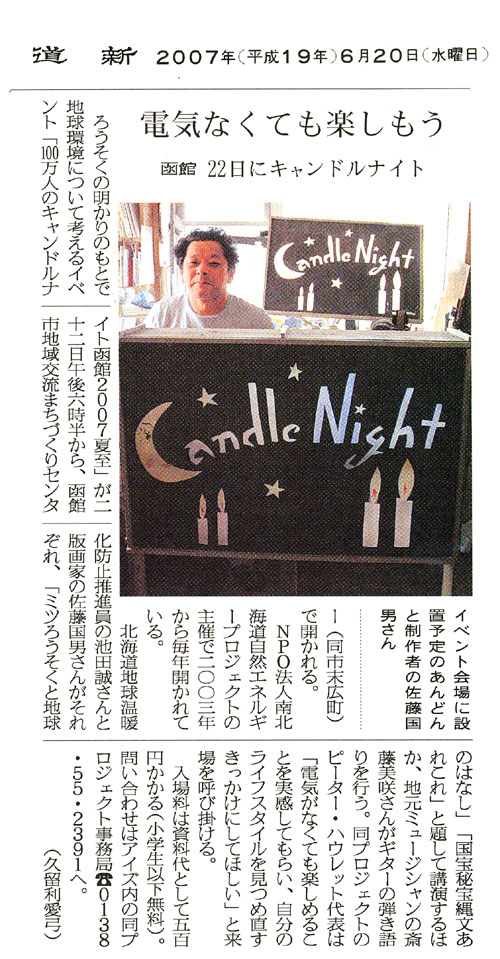 道新 2007年(平成19年)6月20日(水曜日)
電気なくても楽しもう
函館 22日にキャンドルナイト
ろうそくの明かりのもとで
地球環境について考えるイベ
ント「100万人のキャンドルナ
イト函館2007夏至」が二
十二日午後六時半から、函館
市地域交流まちづくりセンタ
Candle Night
Candle Night
イベント会場に設
置予定のあんどん
と制作者の佐藤国
男さん
ー(同市末広町)
で開かれる。
NPO法人南北
海道自然エネルギ
ープロジェクトの
主催で二〇〇三年
から毎年開かれて
いる。
北海道地球温暖
化防止推進員の池田誠さんと
版画家の佐藤国男さんがそれ
ぞれ、「ミツろうそくと地球
のはなし」「国宝秘宝縄文あ
れこれ」と題して講演するほ
か、地元ミュージシャンの斎
藤美咲さんがギターの弾き語
りを行う。同プロジェクトの
ピーター・ハウレット代表は
「電気がなくても楽しめるこ
とを実感してもらい、自分の
ライフスタイルを見つめ直す
きっかけにしてほしい」と来
場を呼び掛ける。
入場料は資料代として五百
円かかる(小学生以下無料)。
問い合わせはアイズ内の同プ
ロジェクト事務局☎0138
・55・2391へ。
(久留利愛弓)